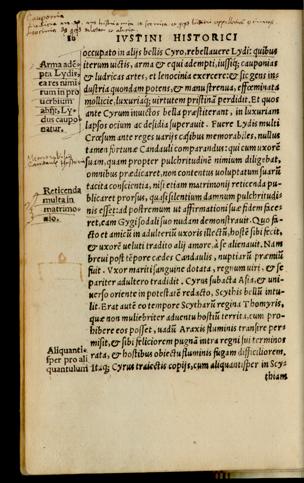 Cauponia
80 IVSTINI HISTORICI
occupato in alijs bellis Cyro, rebellauere Lydi: quibus
iterum uictis, arma & equi adempti, iussiq; cauponias
& ludricas artes, et lenocinia exercere: & sic gens in
dustria quondam potens, & manu strenua, effeminata
mollicie, luxuriaq; uirtutem pristinā perdidit. Et quos
ante Cyrum inuictos bella præstiterant, in luxuriam
lapsos ocium ac desidia superauit. Fuere Lydis multi
Crœsum ante reges uarijs casibus memorabiles, nullus
tamen fortunæ Candauli comparandus: qui cum uxorē
suam, quam propter pulchritudinē nimium diligebat,
omnibus prædicaret, non contentus uoluptatum suarū
tacita conscientia, nisi etiam matrimonij reticenda pu
blicaret prorsus, quasi silentium damnum pulchritudi-
nis esset: ad postremum ut affirmationi suæ fidem face
ret, eam Gygi sodali suo nudam demonstrauit. Quo fa-
cto et amicū in adulteriū uxoris illectū, hostē sibi fecit,
& uxorē ueluti tradito alij amore, à se alienauit. Nam
breui post tēpore cædes Candaulis, nuptiarū præmiū
fuit. Vxor mariti sanguine dotata, regnum uiri, & se
pariter adultero tradidit. Cyrus subacta Asia, & uni-
uerso oriente in potestatē redacto, Scythis bellū intu-
lit. Erat autē eo tempore Scytharū regina Thomyris,
quæ non muliebriter aduentu hostiū territa, cum pro-
hibere eos posset, uadū Araxis fluminis transire per-
misit, & sibi feliciorem pugnā intra regni sui terminos
rata, & hostibus obiectu fluminis fugam difficiliorem.
Itaq; Cyrus traiectis copijs, cum aliquantisper in Scy-
thiam
Arma adē-
pta Lydis,
ea res nimi-
rum in pro
uerbium
abijt, Ly-
dus caupo
natur.
Candauli
Reticenda
multa in
matrimo-
nio.
Aliquanti-
sper pro ali
quantulum